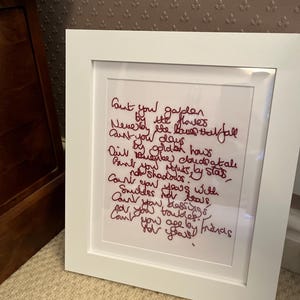 Count your garden
by the flowers
Never by the leaves that fall
Count your days
by golden hours
Don't remember clouds at all
Count your nights by stars,
not shadows.
Count your years with
Smiles not tears
Count your blessings
not your troubles
Count your age by friends
Not years!